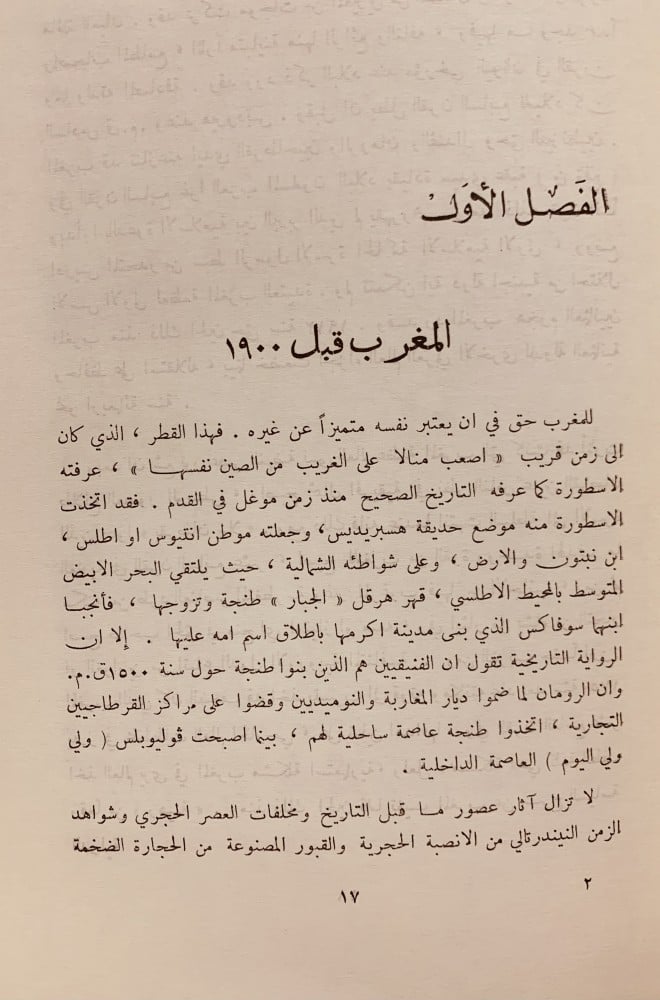 الفَصْل الأوَل
المغرب قبل ١٩٠٠
للمغرب حق في ان يعتبر نفسه متميزاً عن غيره . فهذا القطر ، الذي كان
الى زمن قريب « اصعب منالا على الغريب من الصين نفسها » ، عرفته
الاسطورة كما عرفه التاريخ الصحيح منذ زمن موغل في القدم . فقد اتخذت
الاسطورة منه موضع حديقة هسبريديس، وجعلته موطن انتيوس او اطلس ،
ابن نبتون والارض ، وعلى شواطئه الشمالية ، حيث يلتقي البحر الابيض
المتوسط بالمحيط الاطلسي ، قهر هرقل « الجبار » طنجة وتزوجها ، فأنجبا
ابنهما سوفاكس الذي بنى مدينة اكرمها باطلاق اسم امه عليها . إلا ان
الرواية التاريخية تقول ان الفنيقيين هم الذين بنوا طنجة حول سنة ١٥٠٠ق.م.
وان الرومان لما ضموا ديار المغاربة والنوميديين وقضوا على مراكز القرطاجيين
التجارية ، اتخذوا طنجة عاصمة ساحلية لهم ، بينما اصبحت ڤوليوبلس ( ولي
ولي اليوم ) العاصمة الداخلية .
لا تزال آثار عصور ما قبل التاريخ ومخلفات العصر الحجري وشواهد
الزمن النيندرتالي من الانصبة الحجرية والقبور المصنوعة من الحجارة الضخمة
٢
١٧